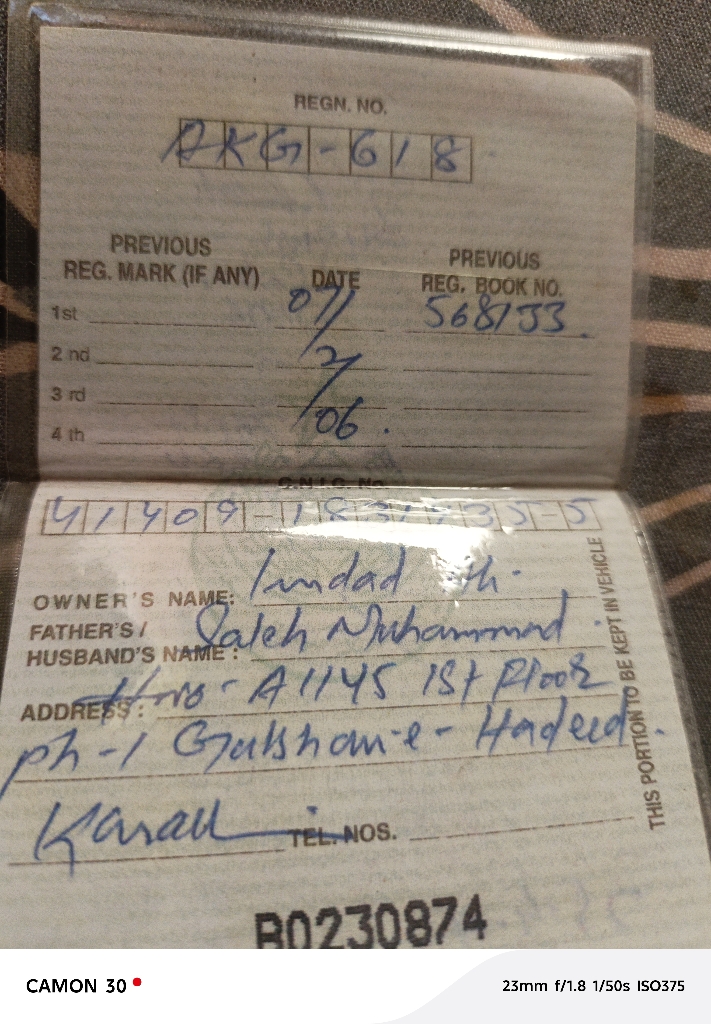 REGN. NO.
AKG-618
PREVIOUS REG. MARK (IF ANY) DATE PREVIOUS REG. BOOK NO.
1st 07/ 568133
2nd 2/
3rd
4th 06.
C.N.I.C. No.
OWNER'S NAME: Imdad
FATHER'S / HUSBAND'S NAME: Saleh Muhammad
ADDRESS: Hno - A1145 1st Floor
ph-1 Gulshan-e-Hadeed.
Karachi
TEL. NOS.
THIS PORTION TO BE KEPT IN VEHICLE
B0230874
CAMON 30
23mm f/1.8 1/50s ISO375